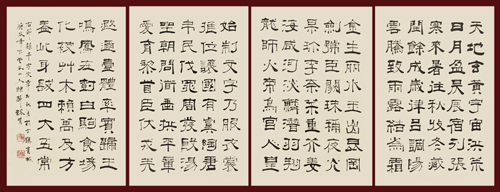 天地玄黃宇宙洪荒
日月盈昃辰宿列張
寒來暑往秋收冬藏
閏餘成歲律呂調陽
雲騰致雨露結為霜
金生麗水玉出崑岡
劍號巨闕珠稱夜光
果珍李柰菜重芥薑
海鹹河淡鱗潛羽翔
龍師火帝鳥官人皇
始制文字乃服衣裳
推位讓國有虞陶唐
弔民伐罪周發殷湯
坐朝問道垂拱平章
愛育黎首臣伏戎羌
遐邇壹體率賓歸王
鳴鳳在樹白駒食場
化被草木賴及萬方
蓋此身髮四大五常